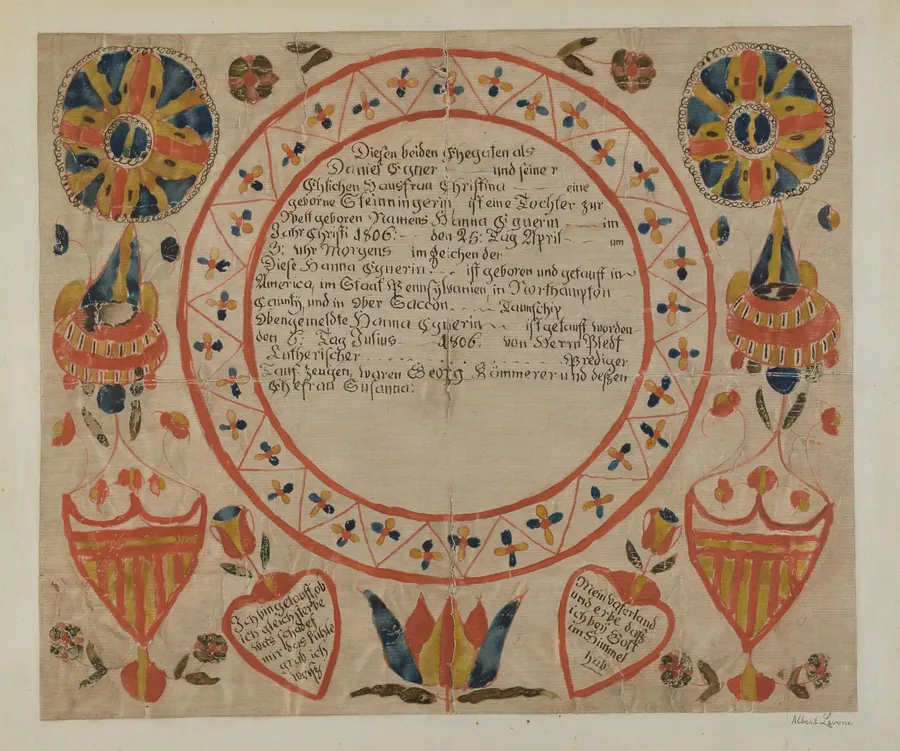 Diesen beiden Ehegaten als
Daniel Egner und seiner
Ehlichen Hausfrau Christina eine
geborne Steinningerin ist eine Tochter zur
Welt geboren Namens Hanna Egnerin im
Jahr Christi 1806: den 25: Tag April um
3: uhr Morgens im Zeichen der
Diese Hanna Egnerin ist geboren und getauft in
America, im Staat Pennsylvanien, in Northampton
County, und in Ober Saccon Taunschip
Obengemeldte Hanna Egnerin ist getauft worden
den 6: Tag Julius 1806. von Herrn
Lutherischer Prediger
Tauf Zeugen, waren Georg Kämmerer und deßen
Ehefrau Susanna:
Ich bin getauft, ob
ich gleich sterbe
was schadet
mir das kühle
grab ich
weiß
Mein vaterland
und erbe daß
ich beÿ Gott
im Himmel
hab
Albert Levone